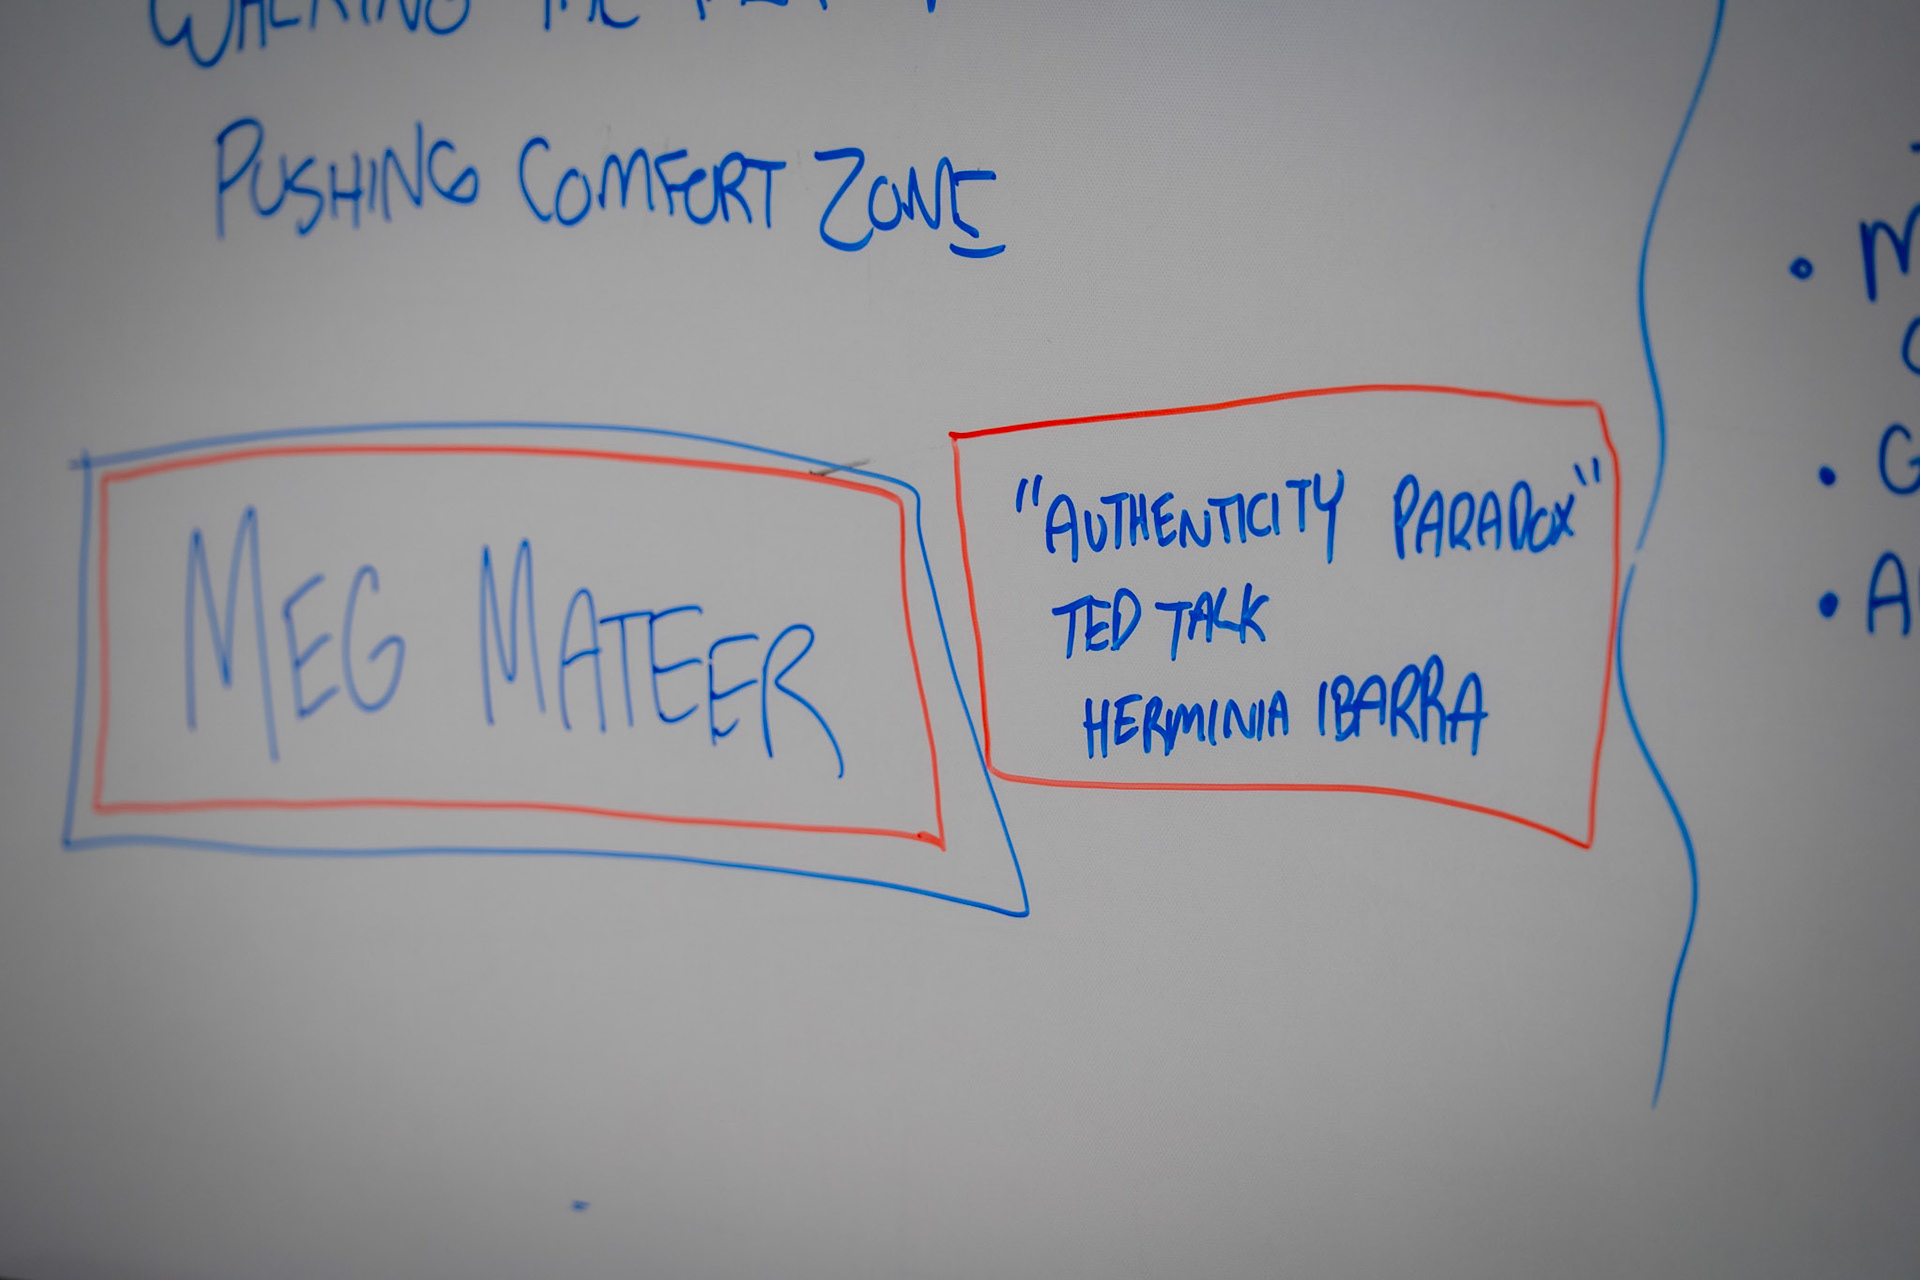 WALKING THE
PUSHING COMFORT ZONE
MEG MATEER
"AUTHENTICITY PARADOX"
TED TALK
HERMINIA IBARRA